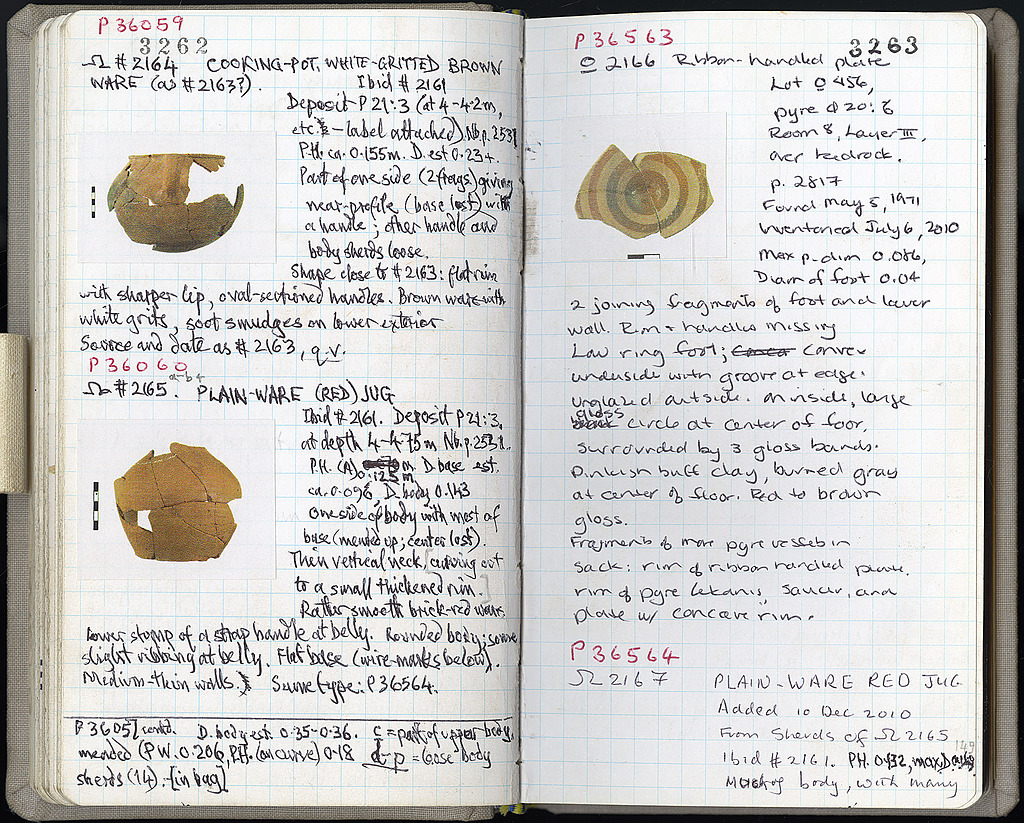 P 36059
3262
Ω # 2164 COOKING-POT, WHITE-GRITTED BROWN
WARE (as # 2163?). Ibid # 2161
Deposit P 21:3 (at 4-4.2m,
etc. - label attached). Nb.p. 2531
P.H. ca. 0.155m. D. est 0.23+.
Part of one side (2 frags) giving
near-profile (base lost) with
a handle; other handle and
body sherds loose.
Shape close to # 2163: flat rim
with sharper lip, oval-sectioned handles. Brown ware with
white grits, soot smudges on lower exterior
Source and date as # 2163, q.v.
P 36060
Ω # 2165. PLAIN-WARE (RED) JUG
Ibid # 2161. Deposit P 21:3,
at depth 4-4.75m Nb.p. 2531.
P.H. (A) 0.125 m. D. base est.
ca. 0.096, D. body 0.143
One side of body with most of
base (mended up; center lost).
Thin vertical neck, curving out
to a small thickened rim.
Rather smooth brick-red ware.
Lower stump of a strap handle at belly. Rounded body; some
slight ribbing at belly. Flat base (wire-marks below).
Medium-thin walls. Same type: P 36564.
P 36057 contd. D. body est. 0.35-0.36. c = part of upper body,
mended (P.W. 0.206, P.H. (on curve) 0.18 d-p = loose body
sherds (14). [in bag]
P 36563
3263
Ω 2166 Ribbon-handled plate
Lot Ω 456,
pyre Φ 20:6
Room 8, Layer III,
over bedrock.
p. 2817
Found May 5, 1971
Inventoried July 6, 2010
Max p. dim 0.086,
Diam of foot 0.04
2 joining fragments of foot and lower
wall. Rim + handles missing
Low ring foot; convex
underside with groove at edge.
unglazed outside. On inside, large
gloss circle at center of floor,
surrounded by 3 gloss bands.
Pinkish buff clay, burned gray
at center of floor. Red to brown
gloss.
Fragments of more pyre vessels in
sack: rim of ribbon handled plate,
rim of pyre lekanis, saucer, and
plate w/ concave rim.
P 36564
Ω 2167 PLAIN-WARE RED JUG
Added 10 Dec 2010
From Sherds of Ω 2165
Ibid # 2161. PH. 0.132, max. D.
Most of body, with many